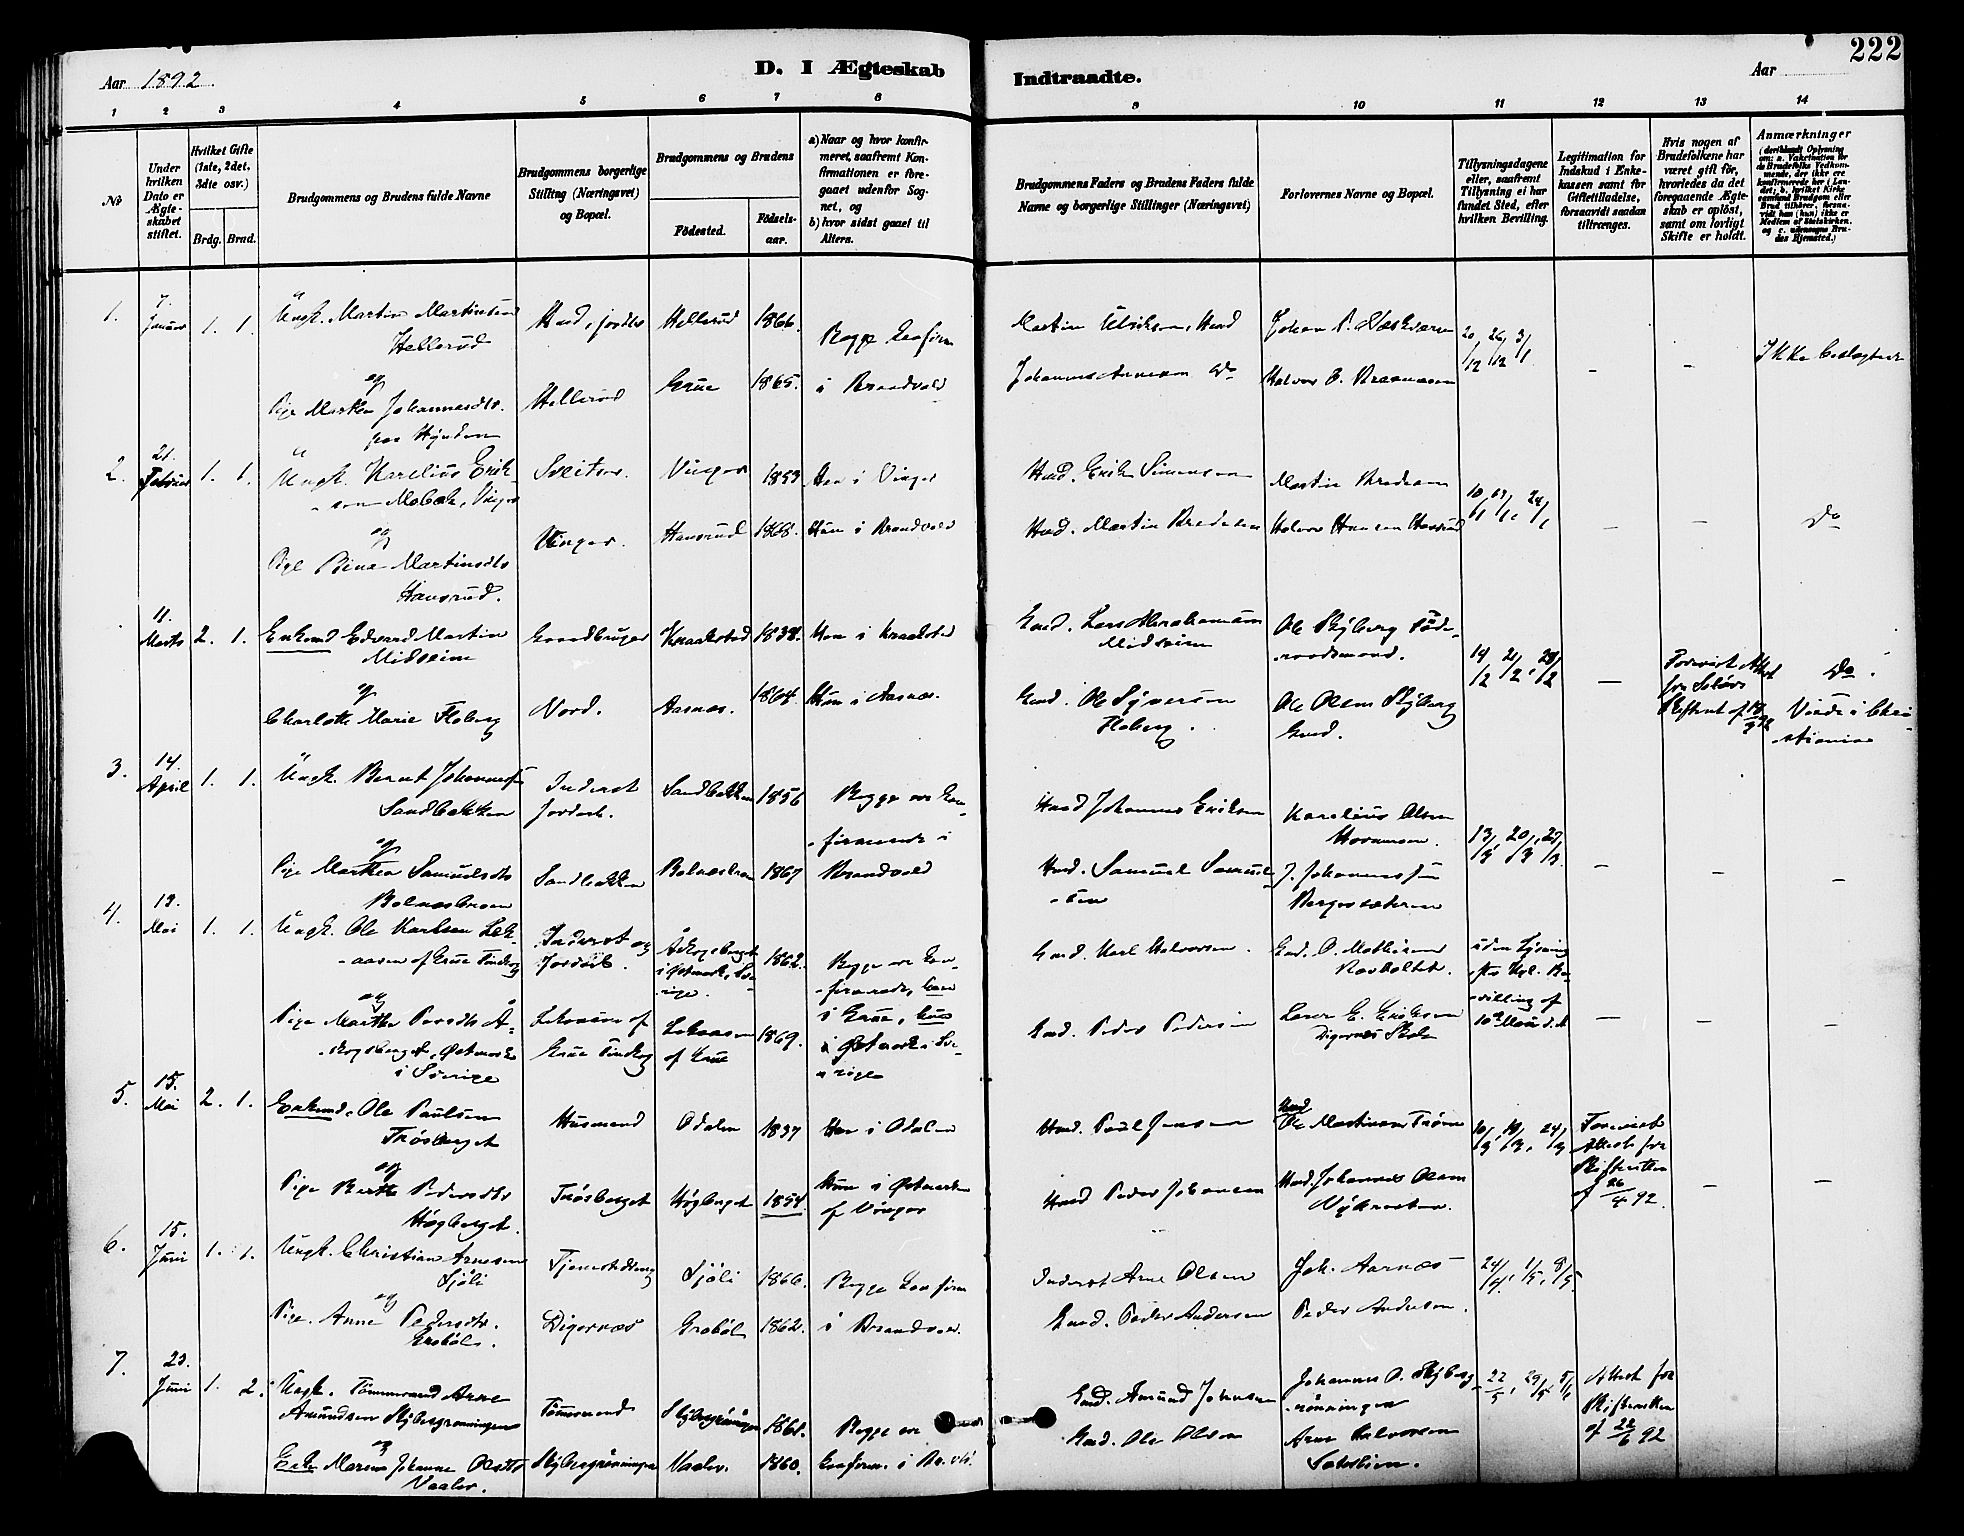 222
Aar 1892
D. I Ægteskab
Indtraadte.
Aar
1 2 3 4 5 6 7 8 9 10 11 12 13 14
No
Under hvilken Dato er Ægteskabet stiftet.
Hvilket Gifte (1ste, 2det. 3dte osv.)
Brdg. Brud.
Brudgommens og Brudens fulde Navne
Brudgommens borgerlige Stilling (Næringsvei) og Bopæl.
Brudgommens og Brudens
Fødested.
Fødselsaar.
a) Naar og hvor konfirmeret, saafremt Konfirmationen er foregaaet udenfor Sognet, og
b) hvor sidst gaaet til Alters.
Brudgommens Faders og Brudens Faders fulde Navne og borgerlige Stillinger (Næringsvei)
Forlovernes Navne og Bopæl.
Tillysningsdagene eller, saafremt Tillysning ei har fundet Sted, efter hvilken Bevilling.
Legitimation for Indskud i Enkekassen samt for Giftetilladelse, forsaavidt saadan tiltrænges.
Hvis nogen af Brudefolkene har været gift før, hvorledes da det foregaaende Ægteskab er opløst, samt om lovligt Skifte er holdt.
Anmærkninger
1. 7. Januar 1. 1.
Ungk. Martin Martinsen
Hellerud
og
Pige Marthea Johannesdtr.
Husd, jordls
Hellerud
Hellerud 1866.
Grue 1865.
Begge konfirm
i Brandvold
Martin Ulriksen, Husd
Johannes Arnesen Do
20/12 26/12 3/1
Ikke beslægtede
2. 21. Februar 1. 1.
Ungk. Karelius Erik
sen Mobæk, Vinger
og
Pige Martinsdtr
Hansrud.
Vinger.
Vinger 1853
Hansrud 1868.
Han i Vinger
Hun i Brandvold
Husd. Erik Simensen
Husd. Martin Bredesen
Martin Bredesen
Halvor Hansen Hansrud
Do
11. Marts 2. 1.
Enkemd Edvard Martin
Midseim
og
Charlotte Marie Floberg
Gaardbruger
Nord.
Kraakstad
Aasnæs. 1864.
Han i Kraakstad
Hun i Aasnæs.
Gmd. Lars Abrahamsen
Midseim
Gmd. Ole Syversen
Floberg.
Ole Skyberg Føde-
raadsmand.
Ole Olsen Skyberg
Gmd.
14/2 21/2, 28/2
Do.
3. 14. April 1. 1.
Ungk. Bernt Johannessen
Sandbækken
og
Pige Marthea Samuelsdtr
Inderst
Jordarb.
Sandbækken
Sandbækken 1856
1867
Begge ere kon-
firmerede i
Brandvold
Husd Johannes Eriksen
Husd. Samuel Samuel-
sen
Karelius Olsen
13/3, 20/3, 27/3
4. 19. Mai 1. 1.
Ungk. Ole Karlsen Lek-
aasen af Grue Finskog
og
Pige Marthe Persdtr Å-
skogsberget, Østmark
i Sverige
Inderst og
Jordarb.
Lekaasen af
Grue Finskog
Åskogsberget
i Østmark, Sve-
rige. 1862.
Lekaasen
af Grue 1869.
Begge ere kon-
firmerede, han
i Grue, hun
i Østmark i Sve-
rige
Gmd. Karl Halvorsen.
Gmd. Peder Pedersen
Gmd. O. Mathisen
Lærer E. Eriksen
Digernes Skole
uden Lysning
efter Kgl. Be-
villing af
5. 15. Mai 2. 1.
Enkemd. Ole Paulsen
Frøsberget
og
Pige Berthe Pedersdtr
Høgberget.
Husmand
Frøsberget
Odalen 1837
Høgberget 1854
Han i Odalen
Hun i Østmarken
af Vinger
Husd. Paul Jensen
Husd Peder Johansen
Husd
Husd. Johannes Olsen
10/3, 24/3
Forevist
Attest fra
Skifteretten
af 26/4 92.
6. 15. Juni 1. 1.
Ungk. Christian Arnesen
Sjøli
og
Pige. Anne Pedersdtr.
Grøbøl.
Digernæs
Sjøli 1866.
Grøbøl 1862.
Begge konfirm
i Brandvold.
Inderst Arne Olsen
Gmd. Peder Andersen
Joh. Aarnæs
Peder Andersen.
24/4, 1/5, 8/5.
7. 23. Juni 1. 2.
Ungk. Tømmermand Arne
Amundsen Skybergrønningen
og
Enke Maren Johanne Olsdtr
Vaaler.
Tømmermand
Skybergrønningen
Skybergrønningen 1861.
Vaaler. 1860.
Begge ere
konfirm. i Br.vld.
Gmd. Amund Johnsen
Gmd. Ole Olsen
Johannes O. Skyberg
rønningen
Arne Halvorsen
22/5, 29/5
Attest fra
Skifteretten
af 22/6 92